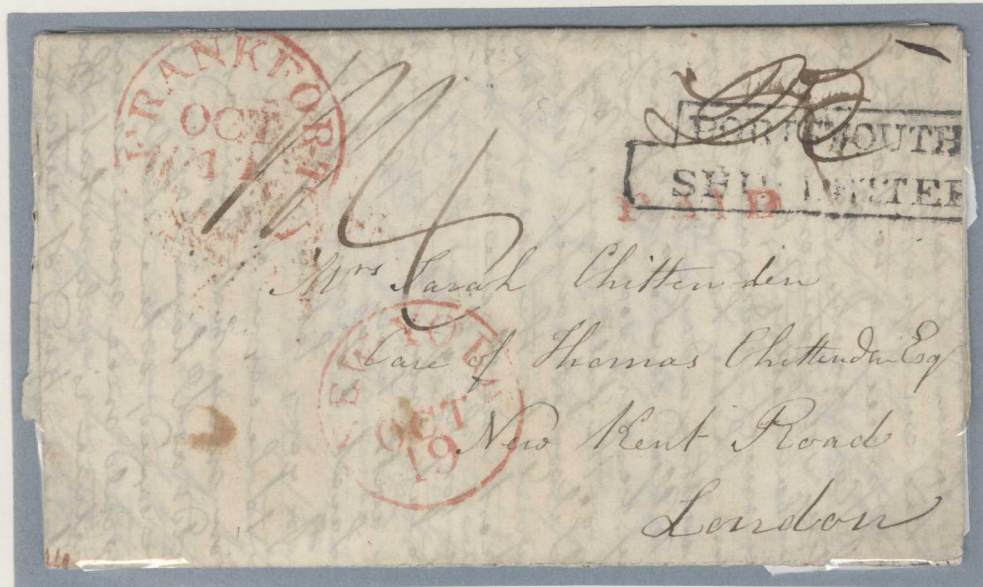 FRANKFORT
OCT
11
PORTSMOUTH
SHIP LETTER
PAID
Mrs Sarah Chittenden
Care of Thomas Chittenden Esq
New Kent Road
London
NEW YORK
OCT
19